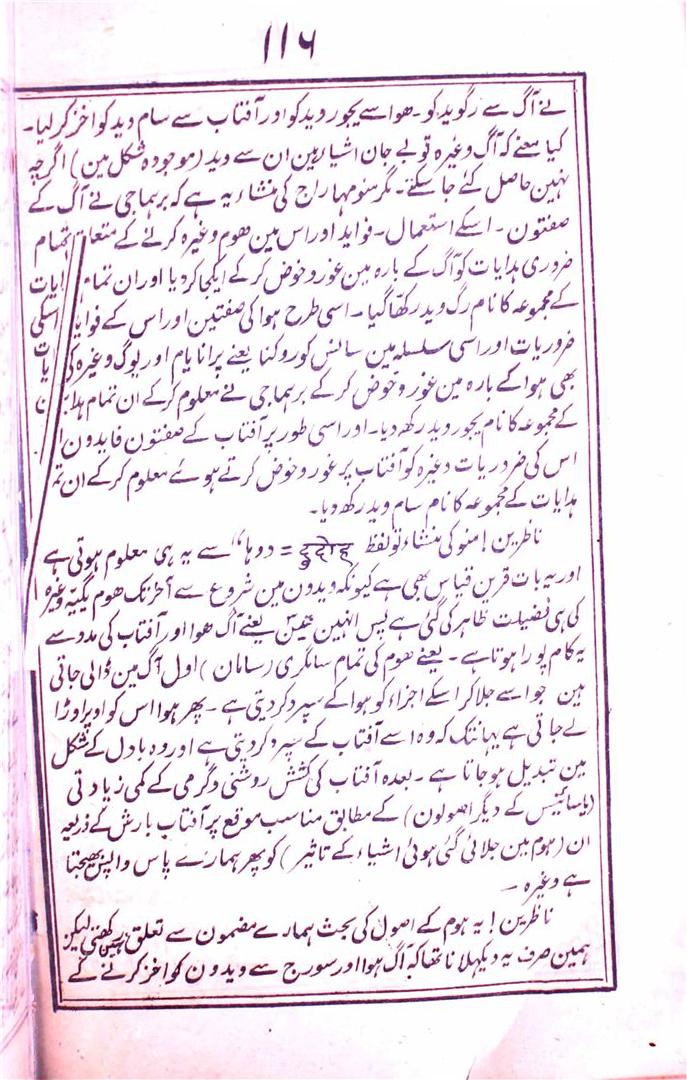 ۱۱۶
نے آگ سے رگوید کو۔ ھوا سے یجور وید کو اور آفتاب سے سام وید کو اخز کر لیا۔
کیا معنے کہ آگ وغیرہ تو بے جان اشیا ہین ان سے وید (موجودہ شکل مین) اگرچہ
نہین حاصل کئے جا سکتے۔ مگر منو مہاراج کی منشاء یہ ہے کہ برہما جی نے آگ کے
صفتون۔ اسکے استعمال۔ فواید اور اس مین ھوم وغیرہ کرنے کے متعلق تمام
ضروری ہدایات کو آگ کے بارہ مین غور و خوض کر کے ایکجا کر دیا اور ان تمام ہدایات
کے مجموعہ کا نام رگ وید رکھا گیا۔ اسی طرح ہوا کی صفتین اور اس کے فواید اسکی
ضروریات اور اسی سلسلہ مین سانس کو روکنا یعنے پرانا یام اور یوگ وغیرہ کی
بھی ہوا کے بارہ مین غور و خوض کر کے برہما جی نے معلوم کر کے ان تمام
کے مجموعہ کا نام یجور وید رکھ دیا۔ اور اسی طور پر آفتاب کے صفتون فایدون
اس کی ضروریات وغیرہ کو آفتاب پر غور و خوض کرتے ہوئے معلوم کر کے ان
ہدایات کے مجموعہ کا نام سام وید رکھ دیا۔
ناظرین! منو کی منشاء تو لفظ दुदोह = دوہا“ سے یہ ہی معلوم ہوتی ہے
اور یہ بات قرین قیاس بھی ہے کیونکہ ویدون مین شروع سے آخر تک ھوم یگیہ وغیرہ
کی ہی فضیلت ظاہر کی گئی ہے پس انہین تین یعنے آگ ھوا اور آفتاب کی مدد سے
یہ کام پورا ہوتا ہے۔ یعنے ھوم کی تمام سامگری (سامان) اول آگ مین ڈالی جاتی
ہین جو اسے جلا کر اسکے اجزاء کو ہوا کے سپرد کر دیتی ہے۔ پھر ہوا اس کو اوپر اوڑا
لے جاتی ہے یہانتک کہ وہ اسے آفتاب کے سپرد کر دیتی ہے اور وہ بادل کے شکل
مین تبدیل ہو جاتا ہے۔ بعدہ آفتاب کی کشش روشنی و گرمی کے کمی زیادتی
(یا سائینس کے دیگر اصولون) کے مطابق مناسب موقع پر آفتاب بارش کے ذریعہ
ان (ہوم مین جلائی گئی ہوئی اشیاء کے تاثیر) کو پھر ہمارے پاس واپس بھیجتا
ہے وغیرہ۔
ناظرین! یہ ہوم کے اصول کی بحث ہمارے مضمون سے تعلق نہین رکھتی لیکن
ہمین صرف یہ دیکہلانا تھا کہ آگ ہوا اور سورج سے ویدون کو اخز کرنے کے